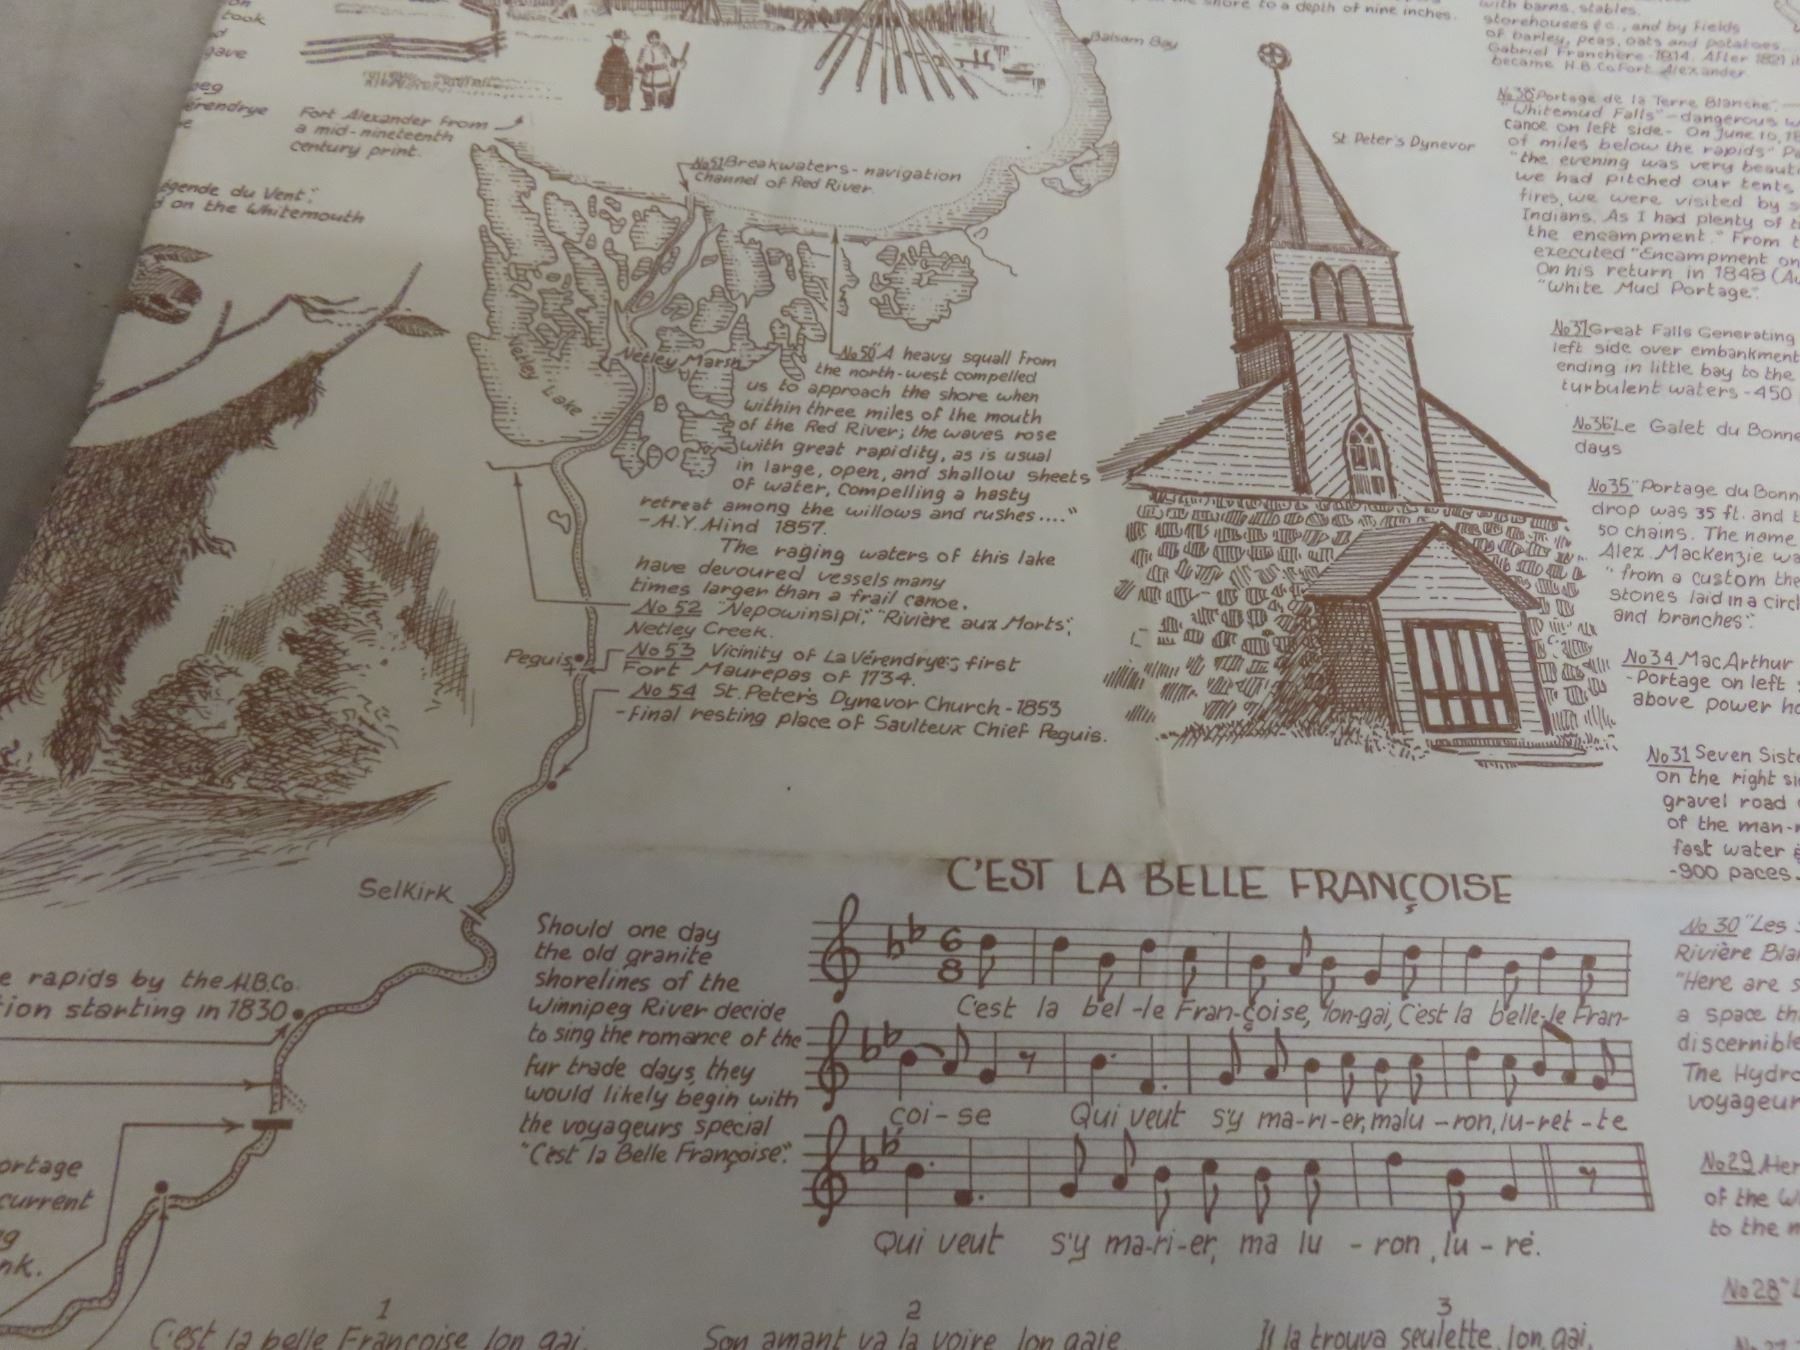 took
gave
érendrye
Fort Alexander from
a mid-nineteenth
century print.
égende du Vent";
d on the Whitemouth
No 51 Breakwaters-navigation
channel of Red River.
the shore to a depth of nine inches.
Balsam Bay
St. Peter's Dynevor
Netley Lake
Netley Marsh
No 50 "A heavy squall from
the north-west compelled
us to approach the shore when
within three miles of the mouth
of the Red River; the waves rose
with great rapidity, as is usual
in large, open, and shallow sheets
of water, compelling a hasty
retreat among the willows and rushes...."
-H.Y. Hind 1857.
The raging waters of this lake
have devoured vessels many
times larger than a frail canoe.
No 52 "Nepowinsipi," "Rivière aux Morts",
Netley Creek.
Peguis
No 53 Vicinity of La Vérendrye's first
Fort Maurepas of 1734.
No 54 St. Peter's Dynevor Church-1853
-final resting place of Saulteux Chief Peguis.
Selkirk
e rapids by the H.B.Co.
tion starting in 1830
ortage
current
nk.
Should one day
the old granite
shorelines of the
Winnipeg River decide
to sing the romance of the
fur trade days, they
would likely begin with
the voyageurs special
"C'est la Belle Françoise".
C'EST LA BELLE FRANÇOISE
6
8
C'est la bel-le Fran-çoise, lon-gai, C'est la belle-le Fran-
çoi-se Qui veut s'y ma-ri-er, malu-ron, lu-ret-te
Qui veut s'y ma-ri-er, ma lu-ron, lu-ré.
1
C'est la belle Françoise lon gai,
2
Son amant va la voire, lon gaie,
3
Il la trouva seulette, lon gai,
with barns, stables,
storehouses &c., and by fields
of barley, peas, oats and potatoes...
Gabriel Franchère-1814. After 1821 it
became H.B.Co Fort Alexander
No 38 "Portage de la Terre Blanche",
"Whitemud Falls"-dangerous w
canoe on left side- On June 10, 18
of miles below the rapids" Pa
"the evening was very beauti
we had pitched our tents
fires, we were visited by s
Indians. As I had plenty of t
the encampment." From t
executed "Encampment on
On his return in 1848 (Au
"White Mud Portage".
No 37 Great Falls Generating
left side over embankment
ending in little bay to the
turbulent waters-450
No 36 "Le Galet du Bonne
days
No 35 "Portage du Bonn
drop was 35 ft. and t
50 chains. The name
Alex. MacKenzie wa
"from a custom the
stones laid in a circl
and branches".
No 34 MacArthur
-Portage on left
above power ho
No 31 Seven Siste
on the right si
gravel road
of the man-m
fast water
-900 paces.
No 30 "Les
Rivière Blan
"Here are s
a space th
discernible
The Hydro
voyageur
No 29 Her
of the Wi
to the m
No 28 "L